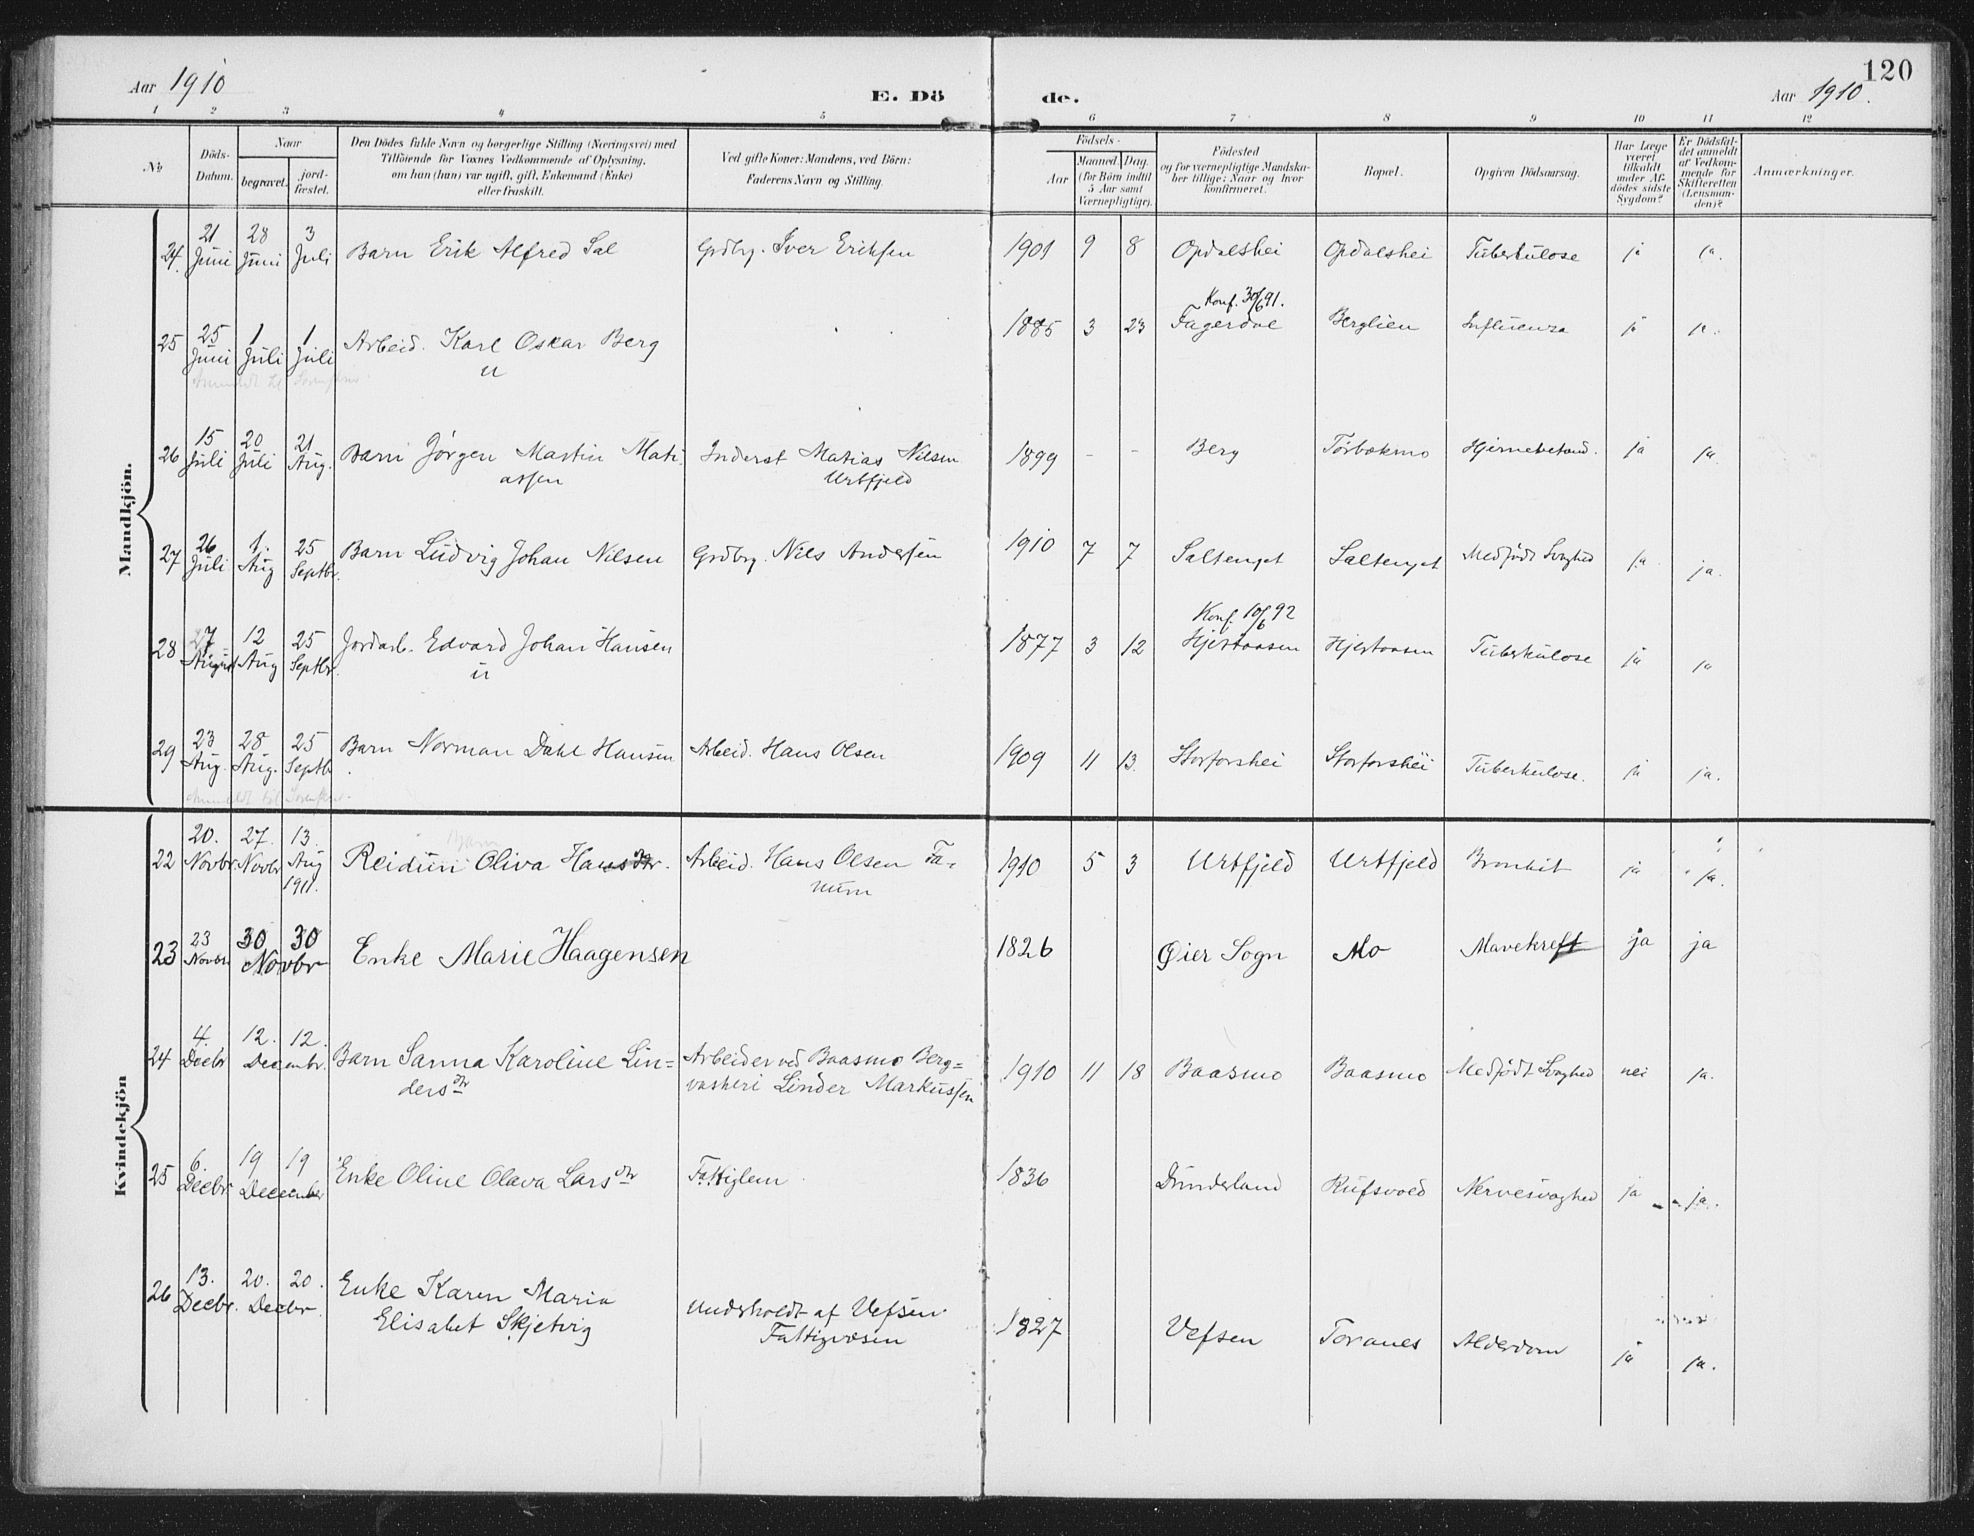 120
Aar 1910
E. Dö de.
Aar 1910.
1 2 3 4 5 6 7 8 9 10 11 12
No
Döds-
Datum.
Naar
begravet.
jord-
fæstet.
Den Dödes fulde Navn og borgerlige Stilling (Næringsvei) med
Tilföiende for Voxnes Vedkommende af Oplysning,
om han (hun) var ugift, gift, Enkemand (Enke)
eller fraskilt.
Ved gifte Koner: Mandens, ved Börn:
Faderens Navn og Stilling.
Födsels-
Aar
Maaned. Dag.
(for Börn indtil
5 Aar samt
Værnepligtige).
Födested
og for værnepligtige Mandska-
ber tillige: Naar og hvor
konfirmeret.
Bopæl.
Opgiven Dödsaarsag.
Har Læge
været
tilkaldt
under Af-
dödes sidste
Sygdom?
Er Dödsfal-
det anmeldt
af Vedkom-
mende for
Skifteretten
(Lensman-
den)?
Anmærkninger.
Mandkjön.
24. 21 Juni 28 Juni 3 Juli Barn Erik Alfred Sal Grdbr. Iver Eriksen 1901 9 8 Opdalshei Opdalshei Tuberkulose ja ja.
25 25 Juni 1 Juli 1 Juli Arbeid. Karl Oskar Berg 1885 3 23 Konf. 30/6 91. Fagerdal Berglien Influenza ja ja.
u
26 15 Juli 20 Juli 21 Aug. Barn Jørgen Martin Mati- Inderst Matias Nilsen 1899 - - Berg Tørbækmo Hjernebetænd. ja ja.
assen Urtfjeld
27 26 Juli 1. Aug 25 Septbr. Barn Ludvig Johan Nilsen Grdbr. Nils Andersen 1910 7 7 Saltenget Saltenget Medfødt Svaghed ja ja.
28 27 August 12 Aug 25 Septbr. Jordarb. Edvard Johan Hansen 1877 3 12 Konf. 10/6 92 Hjertaasen Hjertaasen Tuberkulose ja ja
u
29 23 Aug. 28 Aug. 25 Septb Barn Norman Dahl Hansen Arbeid. Hans Olsen 1909 11 13. Storforshei Storforshei Tuberkulose. ja ja.
Kvindekjön
22 20. Novbr. 27. Novbr 13. Aug 1911. Reidun Oliva Hansdtr. Arbeid. Hans Olsen Fa- 1910 5 3 Urtfjeld Urtfjeld Bronkit ja ja.
num
23 23 Novbr 30 30 Novbr Enke Marie Haagensen 1826 Øier Sogn Mo Mavekreft ja ja
24 4. Decbr 12. 12. Decembr. Barn Sanna Karoline Lin- Arbeider ved Baasmo Berg- 1910 11 18 Baasmo Baasmo Medfødt Svaghed nei ja.
dersdtr vaskeri Linder Markussen
25 6. Decbr 19 19 December Enke Oline Olava Larsdtr Fattiglem 1836 Dunderland Rufsvold Nervesvaghed ja ja.
26 13. Decbr. 20. 20. Decbr. Enke Karen Maria
Elisabet Skjetvig Underholdt af Vefsen 1827 Vefsen Toranes Alderdom ja ja.
Fattigvæsen